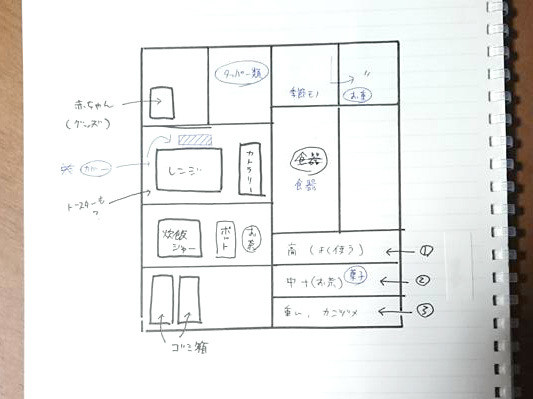 タッパー類
季節モノ
〃
お車
赤ちゃん
(グッズ)
カバー
レンジ
カトラリー
食器
食器
トースターも
炊飯
ジャー
ポット
お茶
高 (よく使う)
①
中 + (お茶)
菓子
②
重い、カンヅメ
③
ゴミ箱